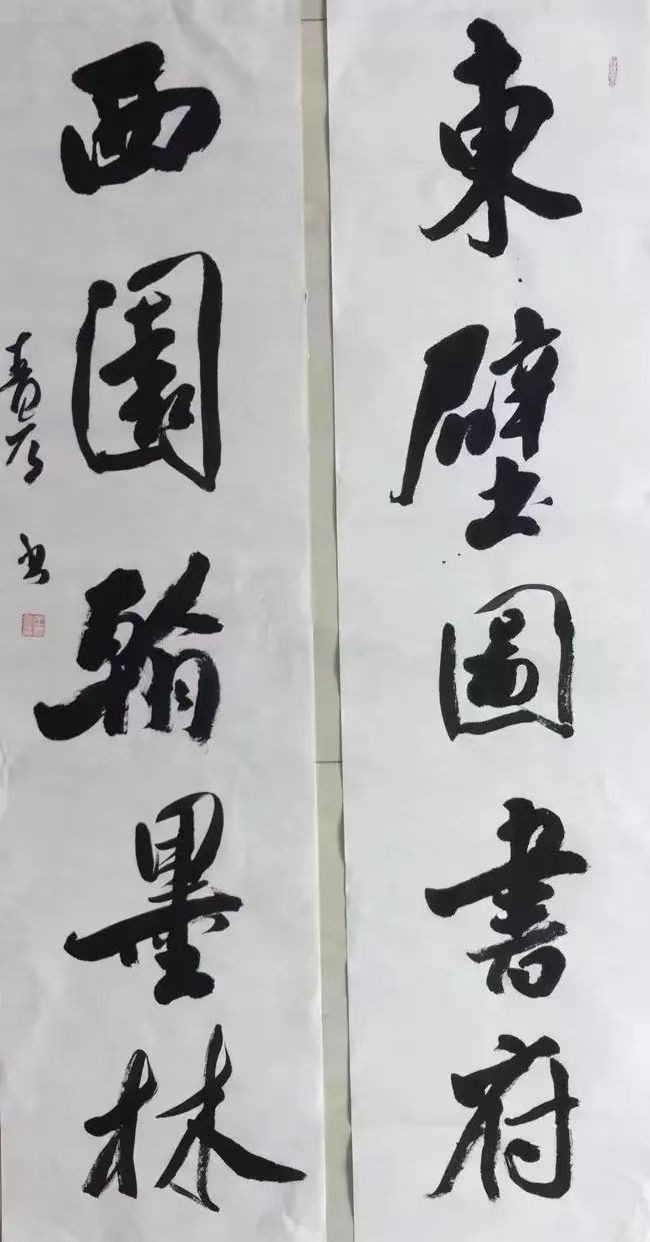 東壁圖書府
西園翰墨林
書